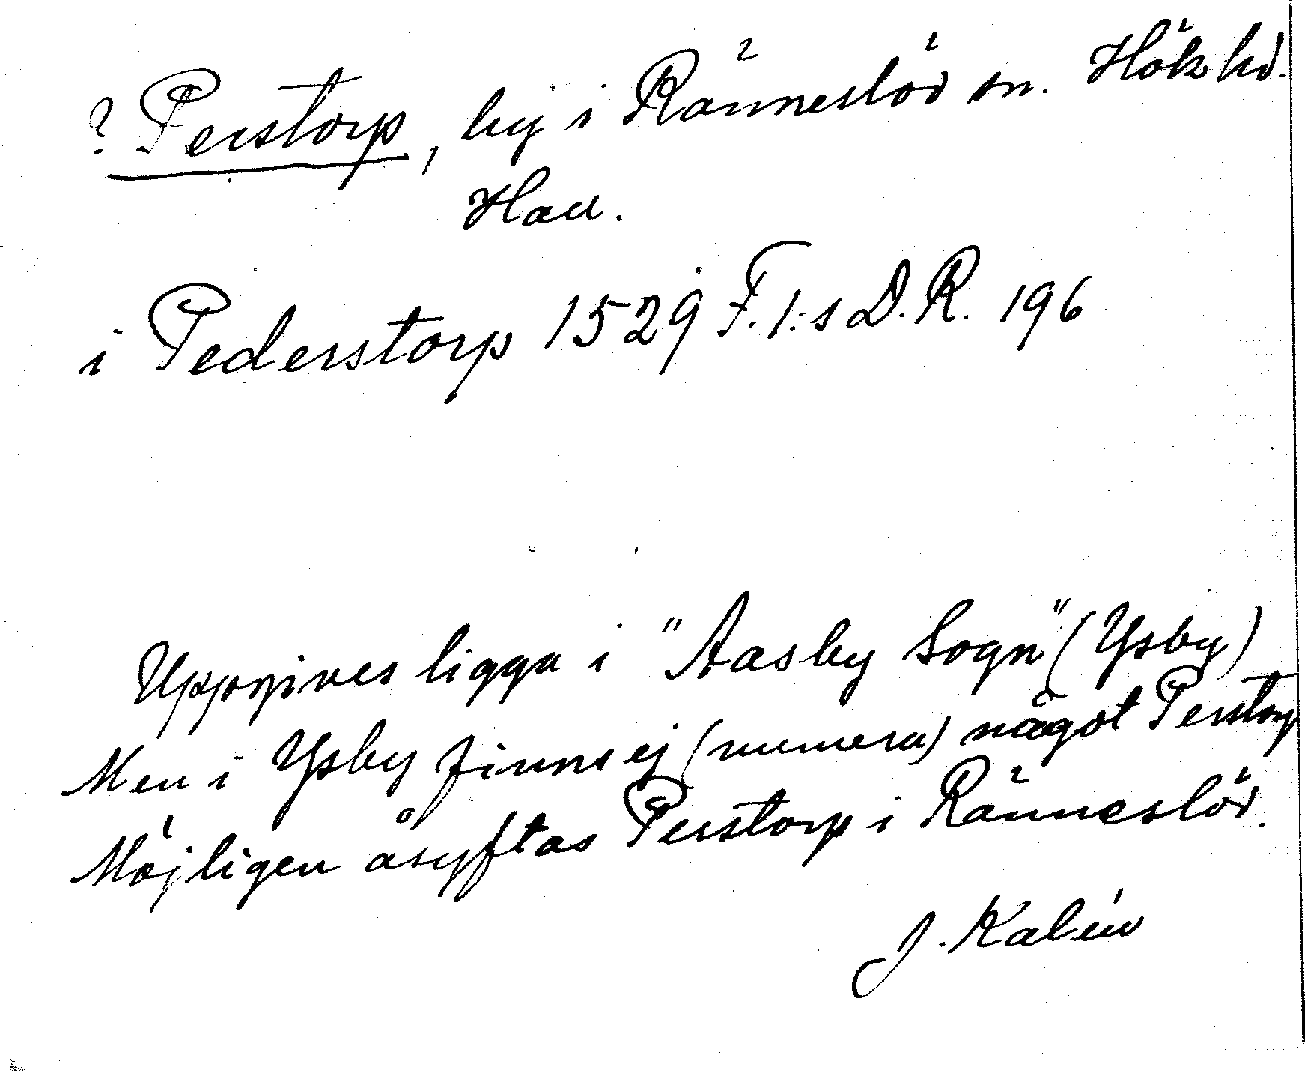 ? Perstorp, by i Ränneslöv sn. Höks hd.
Hall.
i Pederstorp 1529 F.1:s D.R. 196
Uppgives ligga i "Aasby Sogn" (Ysby)
Men i Ysby finns ej (numera) något Perstorp
Möjligen åsyftas Perstorp i Ränneslöv.
J. Kalén